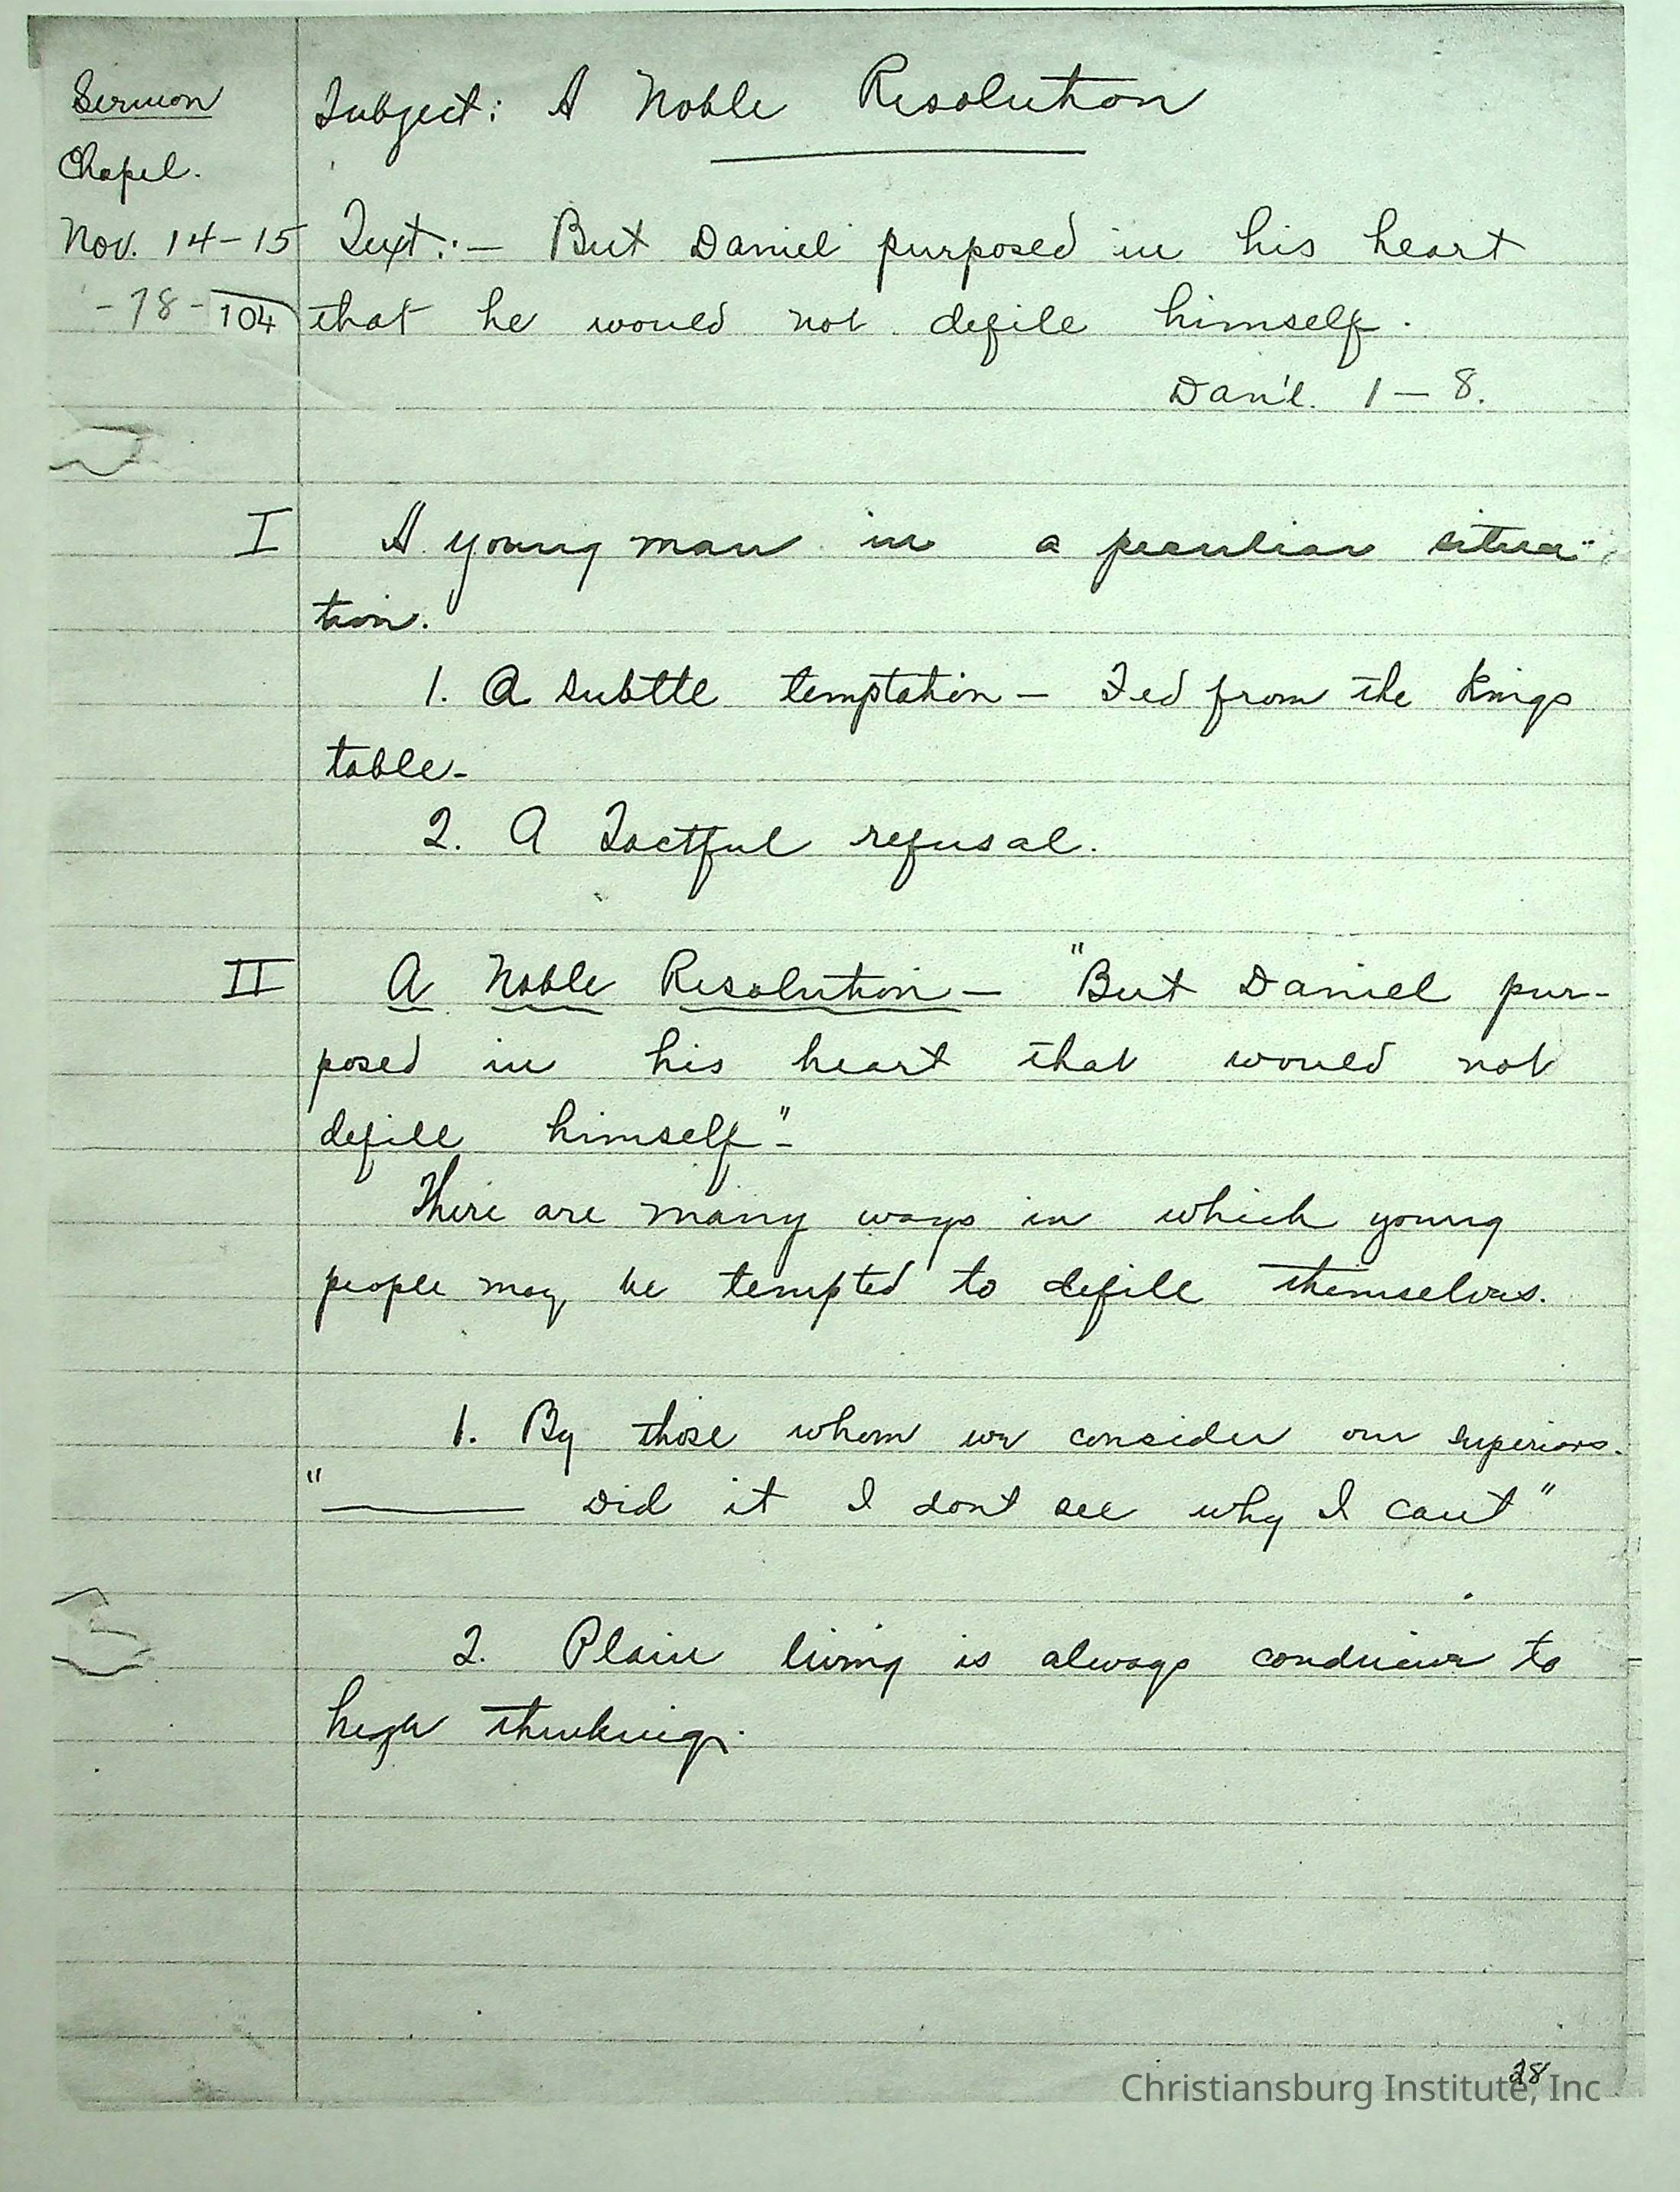 Sermon
Chapel.
Nov. 14-15
-78-104
Subject: A Noble Resolution
Text:- But Daniel purposed in his heart
that he would not defile himself.
Dan'l. 1-8.
I A young man in a peculiar situa-
tion.
1. A subttle temptation - Fed from the Kings
table-
2. A Tactful refusal.
II A Noble Resolution - "But Daniel pur-
posed in his heart that would not
defile himself"-
There are many ways in which young
people may be tempted to defile themselves.
1. By those whom we consider our superiors.
"____ Did it I dont see why I cant"
2. Plain living is always conducive to
high thinking.
28
Christiansburg Institute, Inc